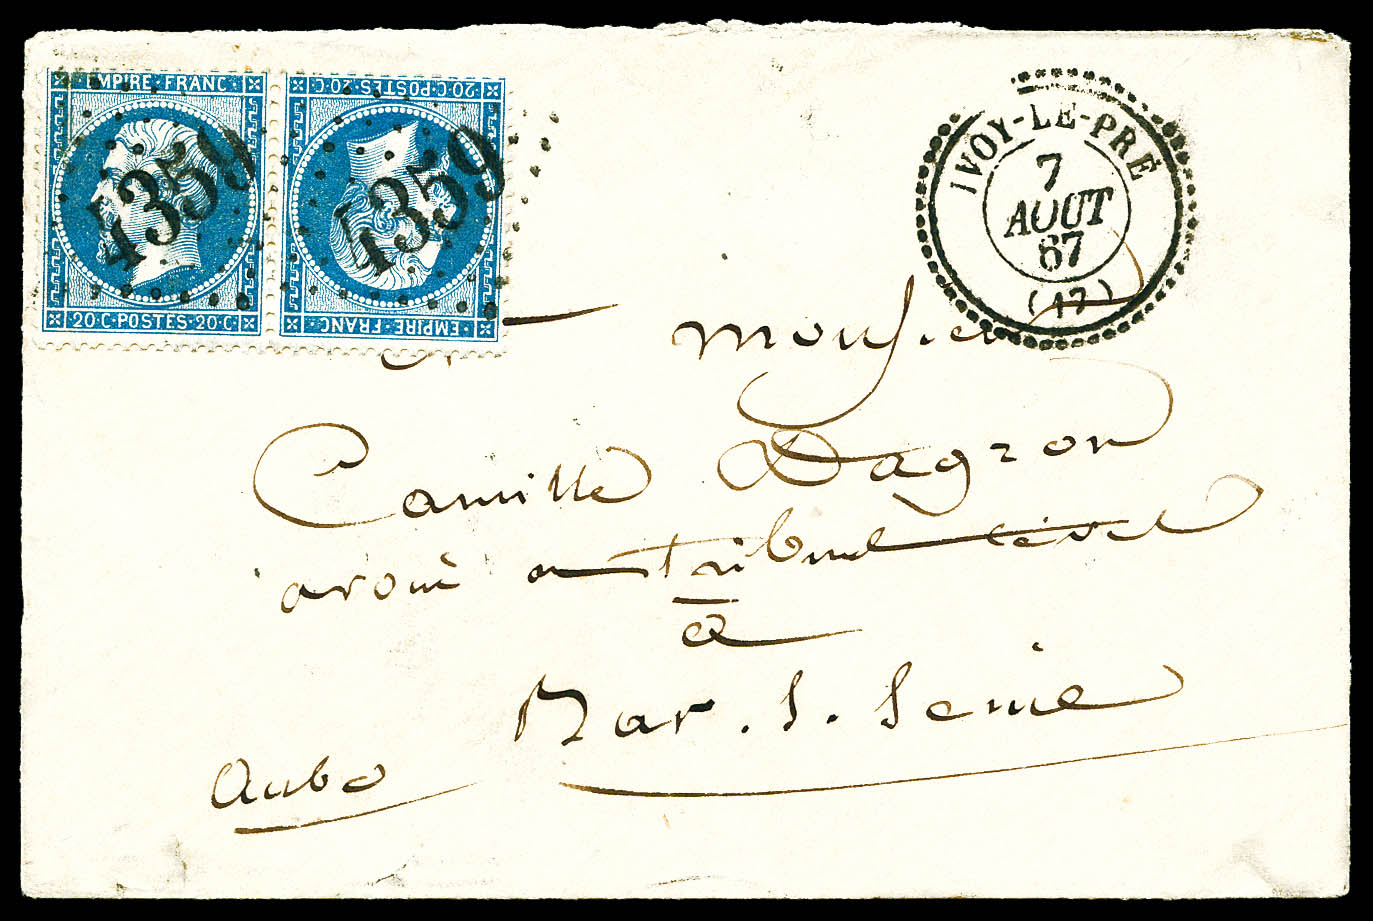 EMPIRE·FRANC·
20·C·POSTES·20·C·
4359
20·C·POSTES·20·C·
EMPIRE·FRANC·
4359
IVOY-LE-PRÉ
7
AOUT
67
(17)
Monsieur
Camille Dagron
avoué au Tribunal civil
à
Bar. S. Seine
Aube